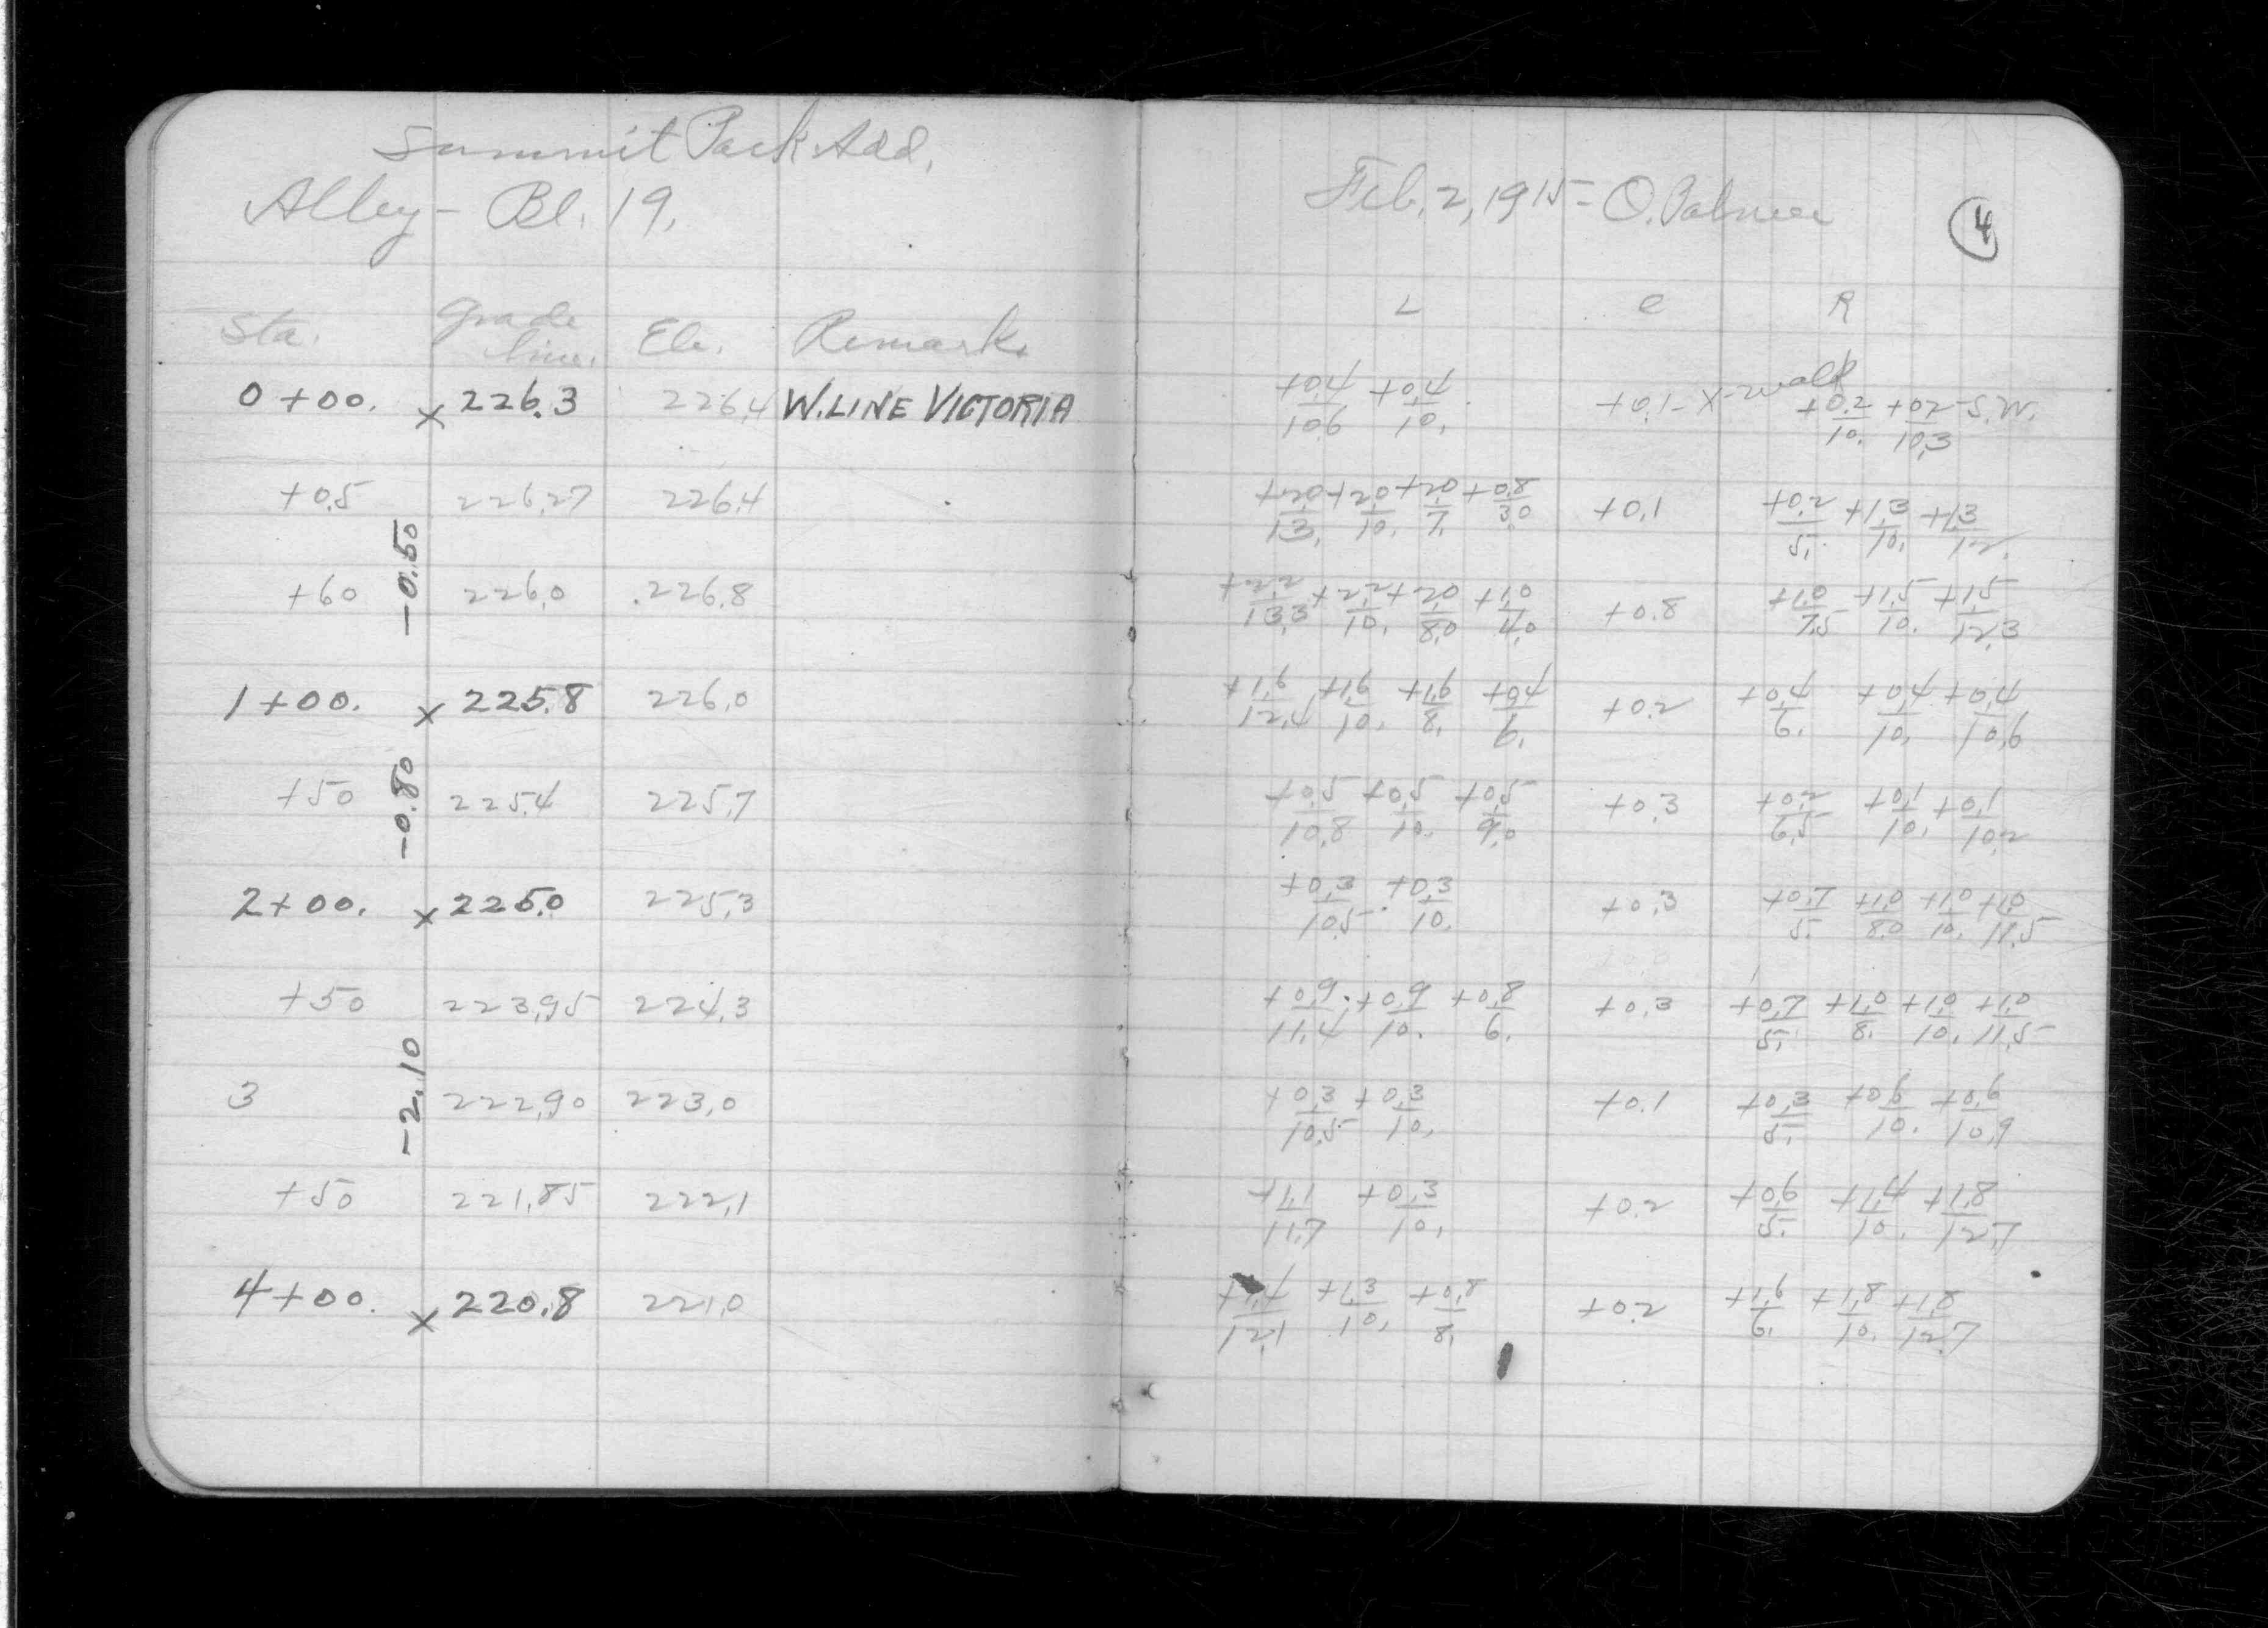 Summit Park Add.
Alley - Bl. 19.
Sta. Grade line. Ele. Remarks
0+00. x 226.3 226.4 W. LINE VICTORIA
+0.5 226.27 226.4
-0.50
+60 226.0 226.8
1+00. x 225.8 226.0
-0.80
+50 225.4 225.7
2+00. x 225.0 225.3
+50 223.95 224.3
-2.10
3 222.90 223.0
+50 221.85 222.1
4+00. x 220.8 221.0
Feb. 2, 1915 - O. Palmer
4
L C R
+0.4/10.6 +0.4/10. +0.1 - X-walk +0.2/10. +0.2/10.3 - S.W.
+2.0/13. +2.0/10. +2.0/7. +0.8/3.0 +0.1 +0.2/5. +1.3/10. +1.3/12.
+2.2/13.3 +2.2/10. +2.0/8.0 +1.0/4.0 +0.8 +1.0/7.5 +1.5/10. +1.5/12.3
+1.6/12.4 +1.6/10. +1.6/8. +0.4/6. +0.2 +0.4/6. +0.4/10. +0.4/10.6
+0.5/10.8 +0.5/10. +0.5/9.0 +0.3 +0.2/6.5 +0.1/10. +0.1/10.2
+0.3/10.5 +0.3/10. +0.3 +0.7/5. +1.0/8.0 +1.0/10. +1.0/11.5
+0.9/11.4 +0.9/10. +0.8/6. +0.3 +0.7/5. +1.0/8. +1.0/10. +1.0/11.5
+0.3/10.5 +0.3/10. +0.1 +0.3/5. +0.6/10. +0.6/10.9
+1.1/11.7 +0.3/10. +0.2 +0.6/5. +1.4/10. +1.8/12.7
+1.4/12.1 +1.3/10. +0.8/8. +0.2 +1.6/6. +1.8/10. +1.8/12.7